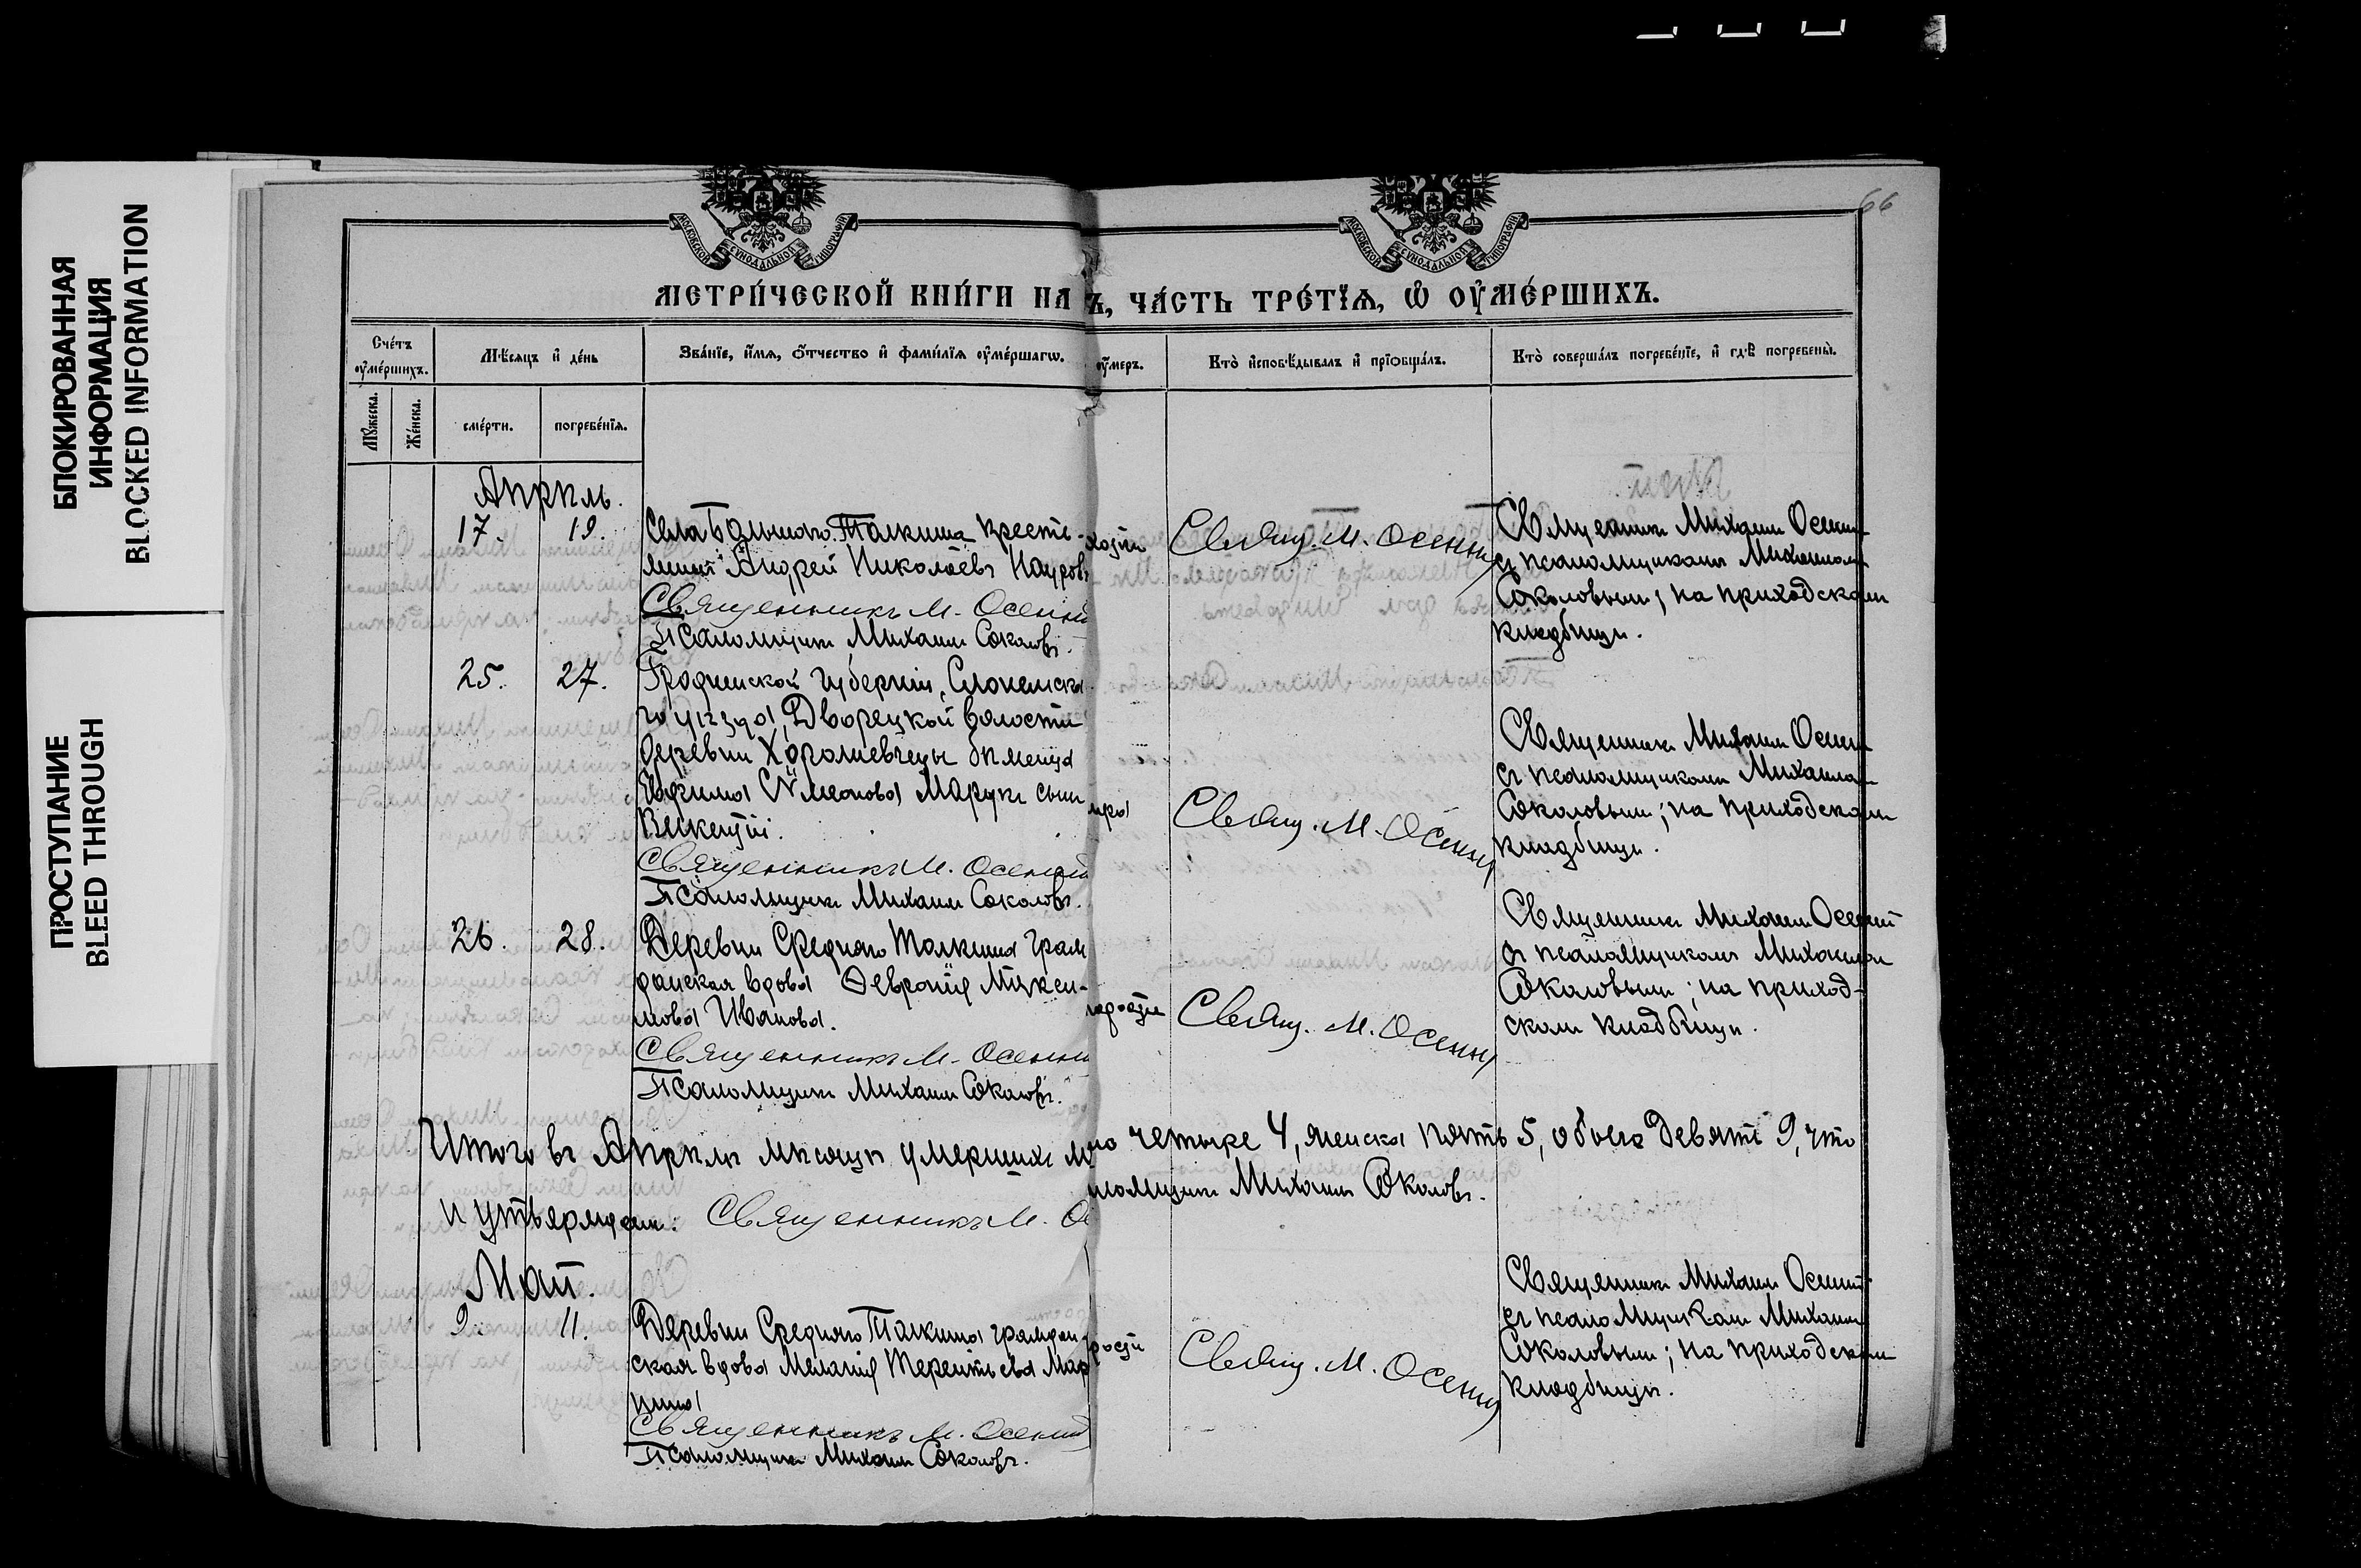 БЛОКИРОВАННАЯ
ИНФОРМАЦИЯ
BLOCKED INFORMATION
ПРОСТУПАНИЕ
BLEED THROUGH
66
МОСКОВСКОЙ СѴНОДАЛЬНОЙ ТИПОГРАФІИ
МОСКОВСКОЙ СѴНОДАЛЬНОЙ ТИПОГРАФІИ
МЕТРИ́ЧЕСКОЙ КНИ́ГИ НА
Ъ, ЧА́СТЬ ТРЕ́ТЇѦ, Ѡ҆ ОУ҆МЕ́РШИХЪ.
Сче́тъ оу҆ме́ршихъ.
Мѣ́сѧцъ и҆ де́нь
Зва́нїе, и҆́мѧ, ѻ҆́тчество и҆ фами́лїѧ оу҆ме́ршагѡ.
оу҆́меръ.
Кто̀ и҆сповѣ́дывалъ и҆ прїѻбща́лъ.
Кто̀ соверша́лъ погребе́нїе, и҆ гдѣ̀ погребены̀.
Мꙋ́жеска.
Же́нска.
сме́рти.
погребе́нїѧ.
Апрѣль.
17. 19. Села Большаго Толкиша кресть-
янинъ Андрей Николаевъ
Священникъ М. Осенні
Псаломщикъ Михаилъ Соколовъ.
Свящ. М. Осенні
Священникъ Михаилъ Осенній
съ псаломщикомъ Михаиломъ
Соколовымъ; на приходскомъ
кладбищѣ.
25. 27. Гродненской губерніи, Слонимска-
го уѣзда, Дворецкой волости
деревни бѣженца
сынъ
Викентій.
Священникъ М. Осенній
Псаломщикъ Михаилъ Соколовъ.
Свящ. М. Осенні
Священникъ Михаилъ Осенній
съ псаломщикомъ Михаиломъ
Соколовымъ; на приходскомъ
кладбищѣ.
26. 28. Деревни Средняго Толкиша граж
данская вдова Февронія Максимова Иванова.
Священникъ М. Осенни
Псаломщикъ Михаилъ Соколовъ.
Свящ. М. Осенні
Священникъ Михаилъ Осенній
съ псаломщикомъ Михаиломъ
Соколовымъ; на приход-
скомъ кладбищѣ.
Итого въ Апрѣлѣ мѣсяцѣ умершихъ му
но четыре 4, женска пять 5, обоего девять 9, что
и утверждаемъ: Священникъ М. Ос
ломщикъ Михаилъ Соколовъ.
Май.
9. 11. Деревни Средняго Толкиша граждан-
ская вдова Меланія Терентьева
Священникъ М. Осенній
Псаломщикъ Михаилъ Соколовъ.
Свящ. М. Осенні
Священникъ Михаилъ Осенній
съ псаломщикомъ Михаиломъ
Соколовымъ; на приходскомъ
кладбищѣ.